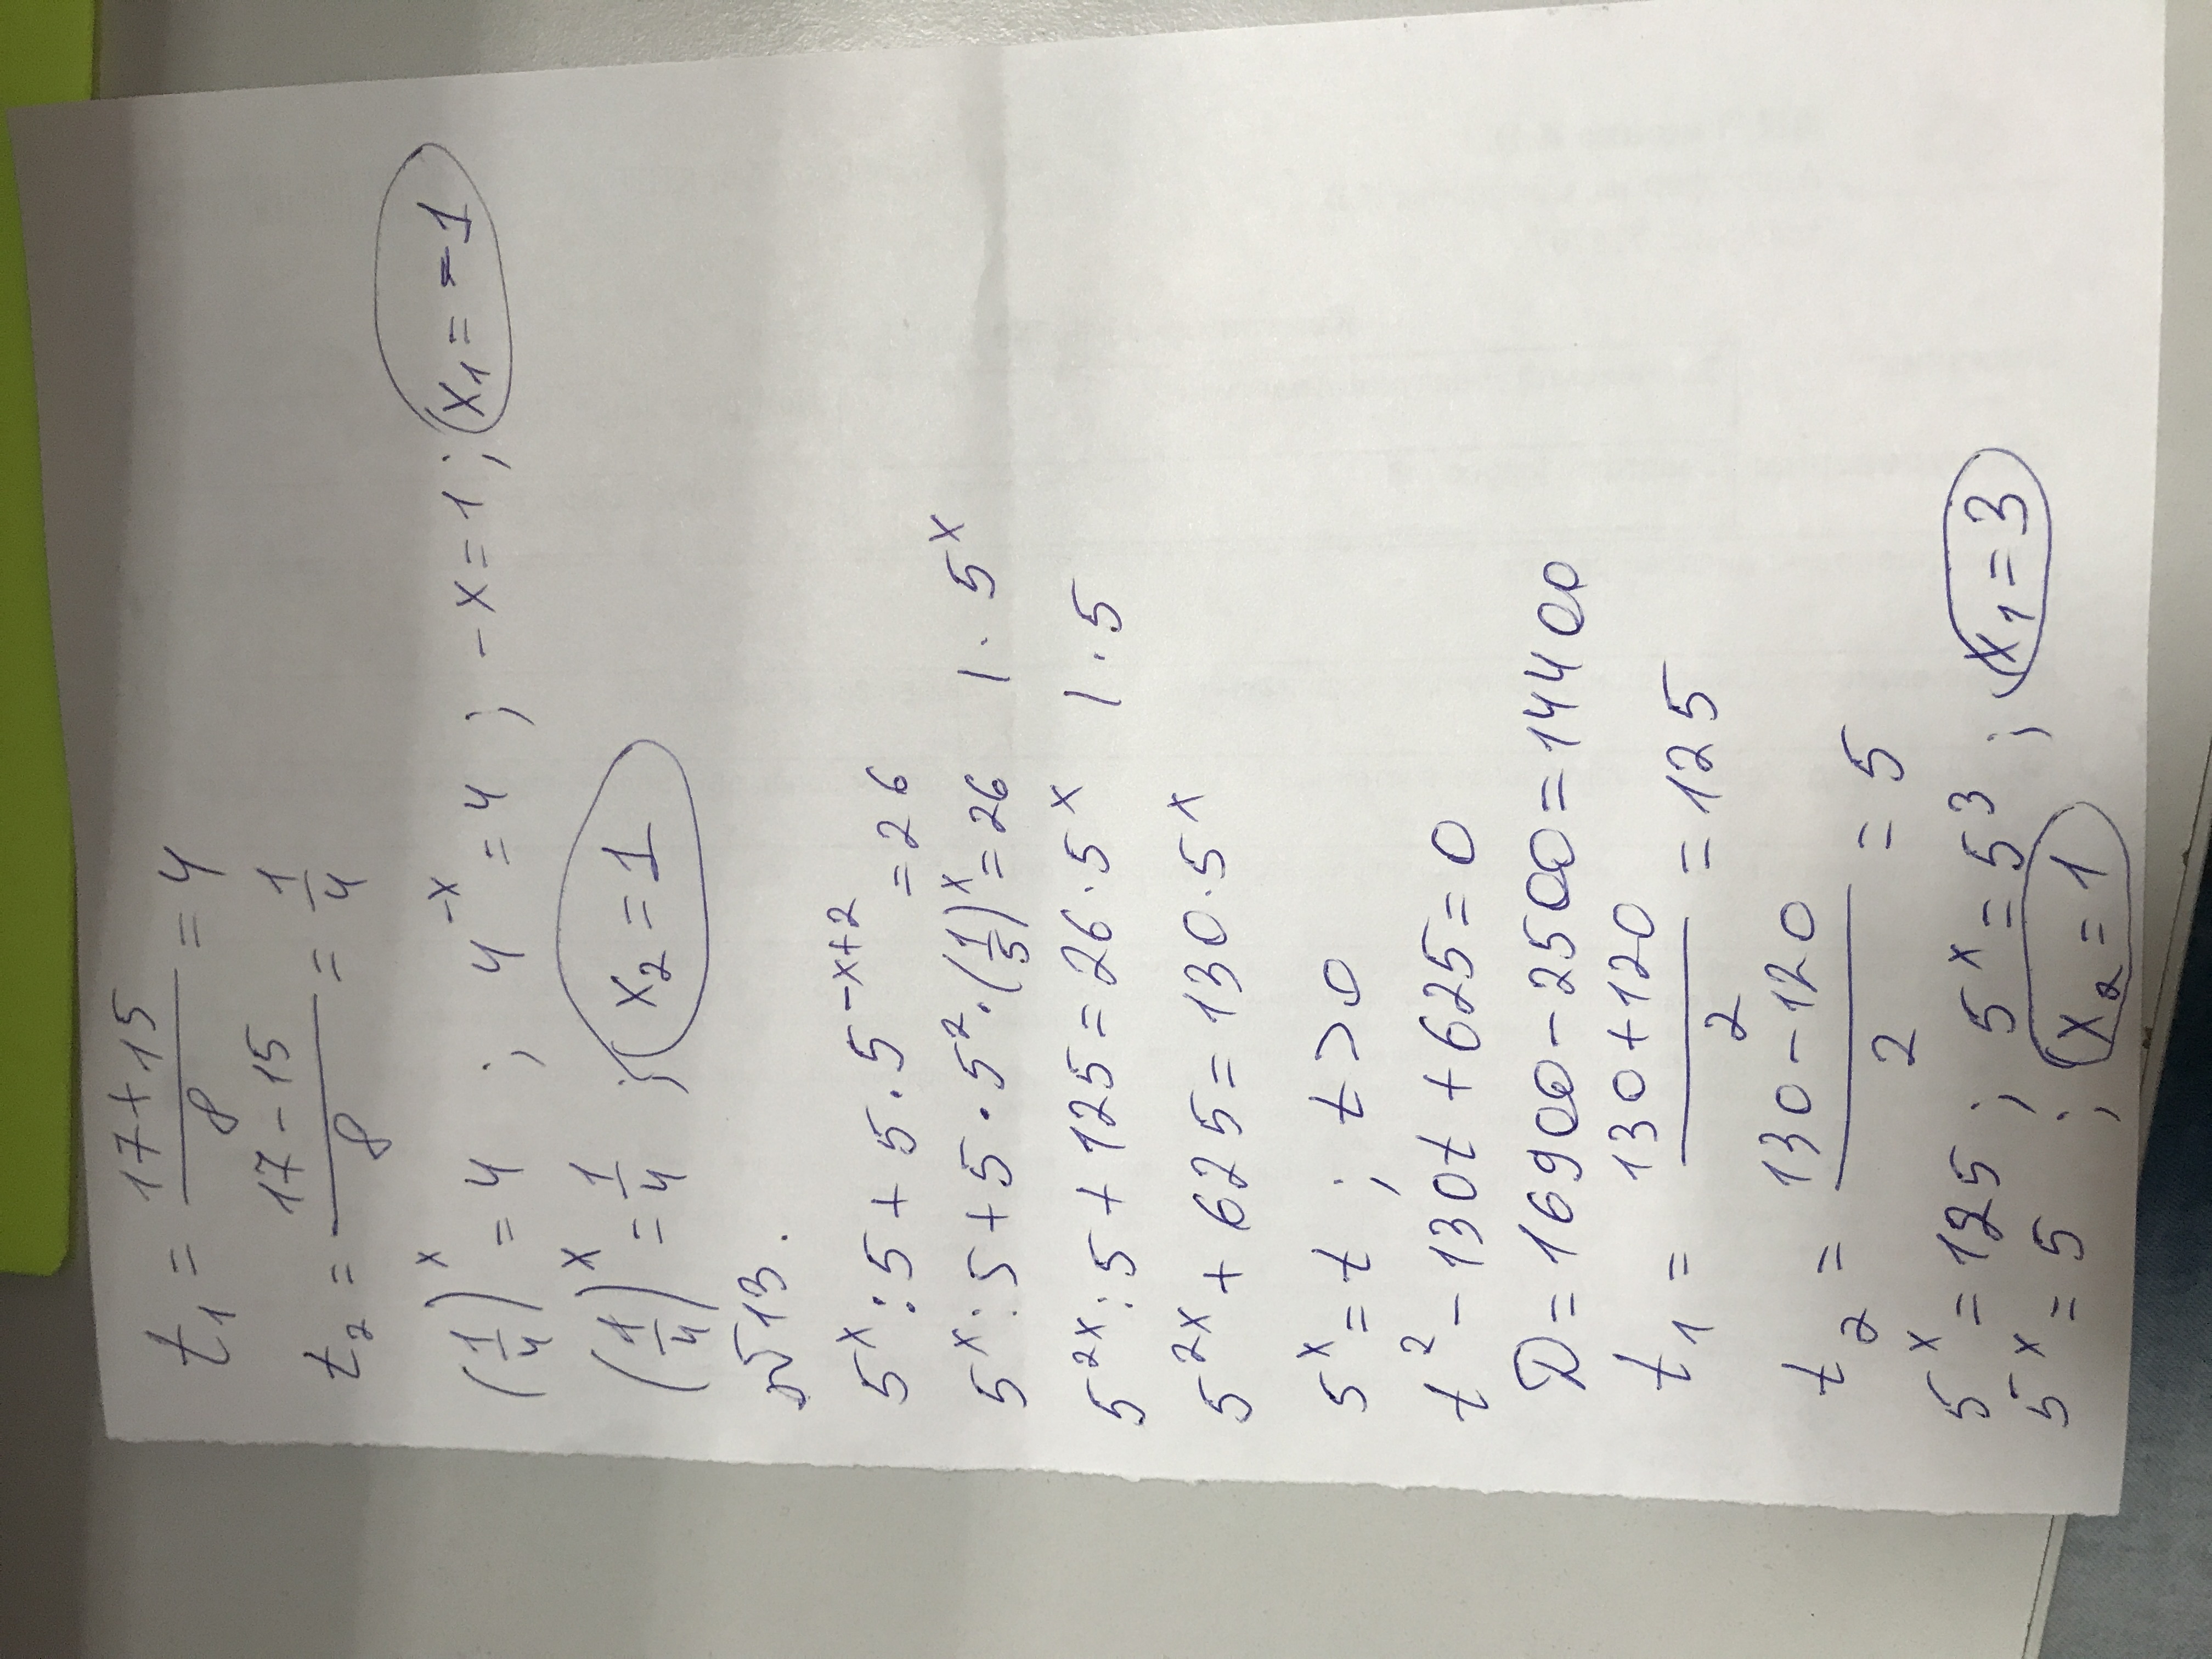 t₁ = (17+15)/8 = 4
t₂ = (17-15)/8 = 1/4
(1/4)ˣ = 4 ; 4⁻ˣ = 4 ; -x = 1 ; x₁ = -1
(1/4)ˣ = 1/4 ; x₂ = 1
№13.
5ˣ : 5 + 5 · 5⁻ˣ⁺² = 26
5ˣ : 5 + 5 · 5² · (1/5)ˣ = 26 | · 5ˣ
5²ˣ : 5 + 125 = 26 · 5ˣ | · 5
5²ˣ + 625 = 130 · 5ˣ
5ˣ = t ; t > 0
t² - 130t + 625 = 0
D = 16900 - 2500 = 14400
t₁ = (130+120)/2 = 125
t₂ = (130-120)/2 = 5
5ˣ = 125 ; 5ˣ = 5³ ; x₁ = 3
5ˣ = 5 ; x₂ = 1